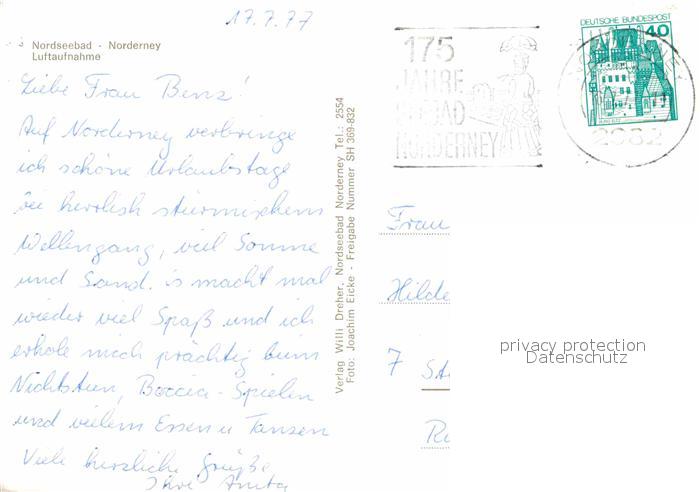 17.7.77
Nordseebad - Norderney
Luftaufnahme
Liebe Frau Benz!
Auf Norderney verbringe
ich schöne Urlaubstage
bei herrlich stürmischem
Wellengang, viel Sonne
und Sand. Es macht mal
wieder viel Spaß und ich
erhole mich prächtig beim
Nichtstun, Boccia-Spielen
und vielem Essen u Tanzen
Viele herzliche Grüße
Ihre Anita
Verlag Willi Dreher, Nordseebad Norderney Tel.: 2554
Foto: Joachim Eicke - Freigabe Nummer SH 369-832
175
JAHRE
BAD
NORDERNEY
DEUTSCHE BUNDESPOST
40
2982
Frau
Hilde
7 St
privacy protection
Datenschutz